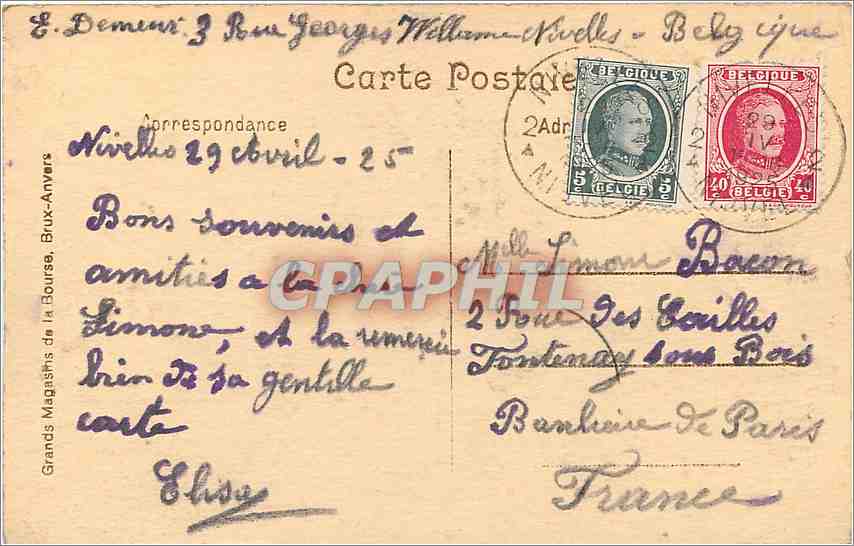 E. Demeur 3 Rue Georges Willame Nivelles - Belgique
Carte Postale
Correspondance
Adr
Nivelles 29 Avril - 25
Bons souvenirs et
amitiés a la chere
Simone, et la remercie
bien de sa gentille
carte
Elisa
Grands Magasins de la Bourse, Brux-Anvers
BELGIQUE
5c 5c
BELGIE
BELGIQUE
40c 40c
BELGIE
29
IV
1925
NIVELLES
Mlle Simone Bacon
2 Rue des Cailles
Fontenay sous Bois
Banlieue de Paris
France
CPAPHIL